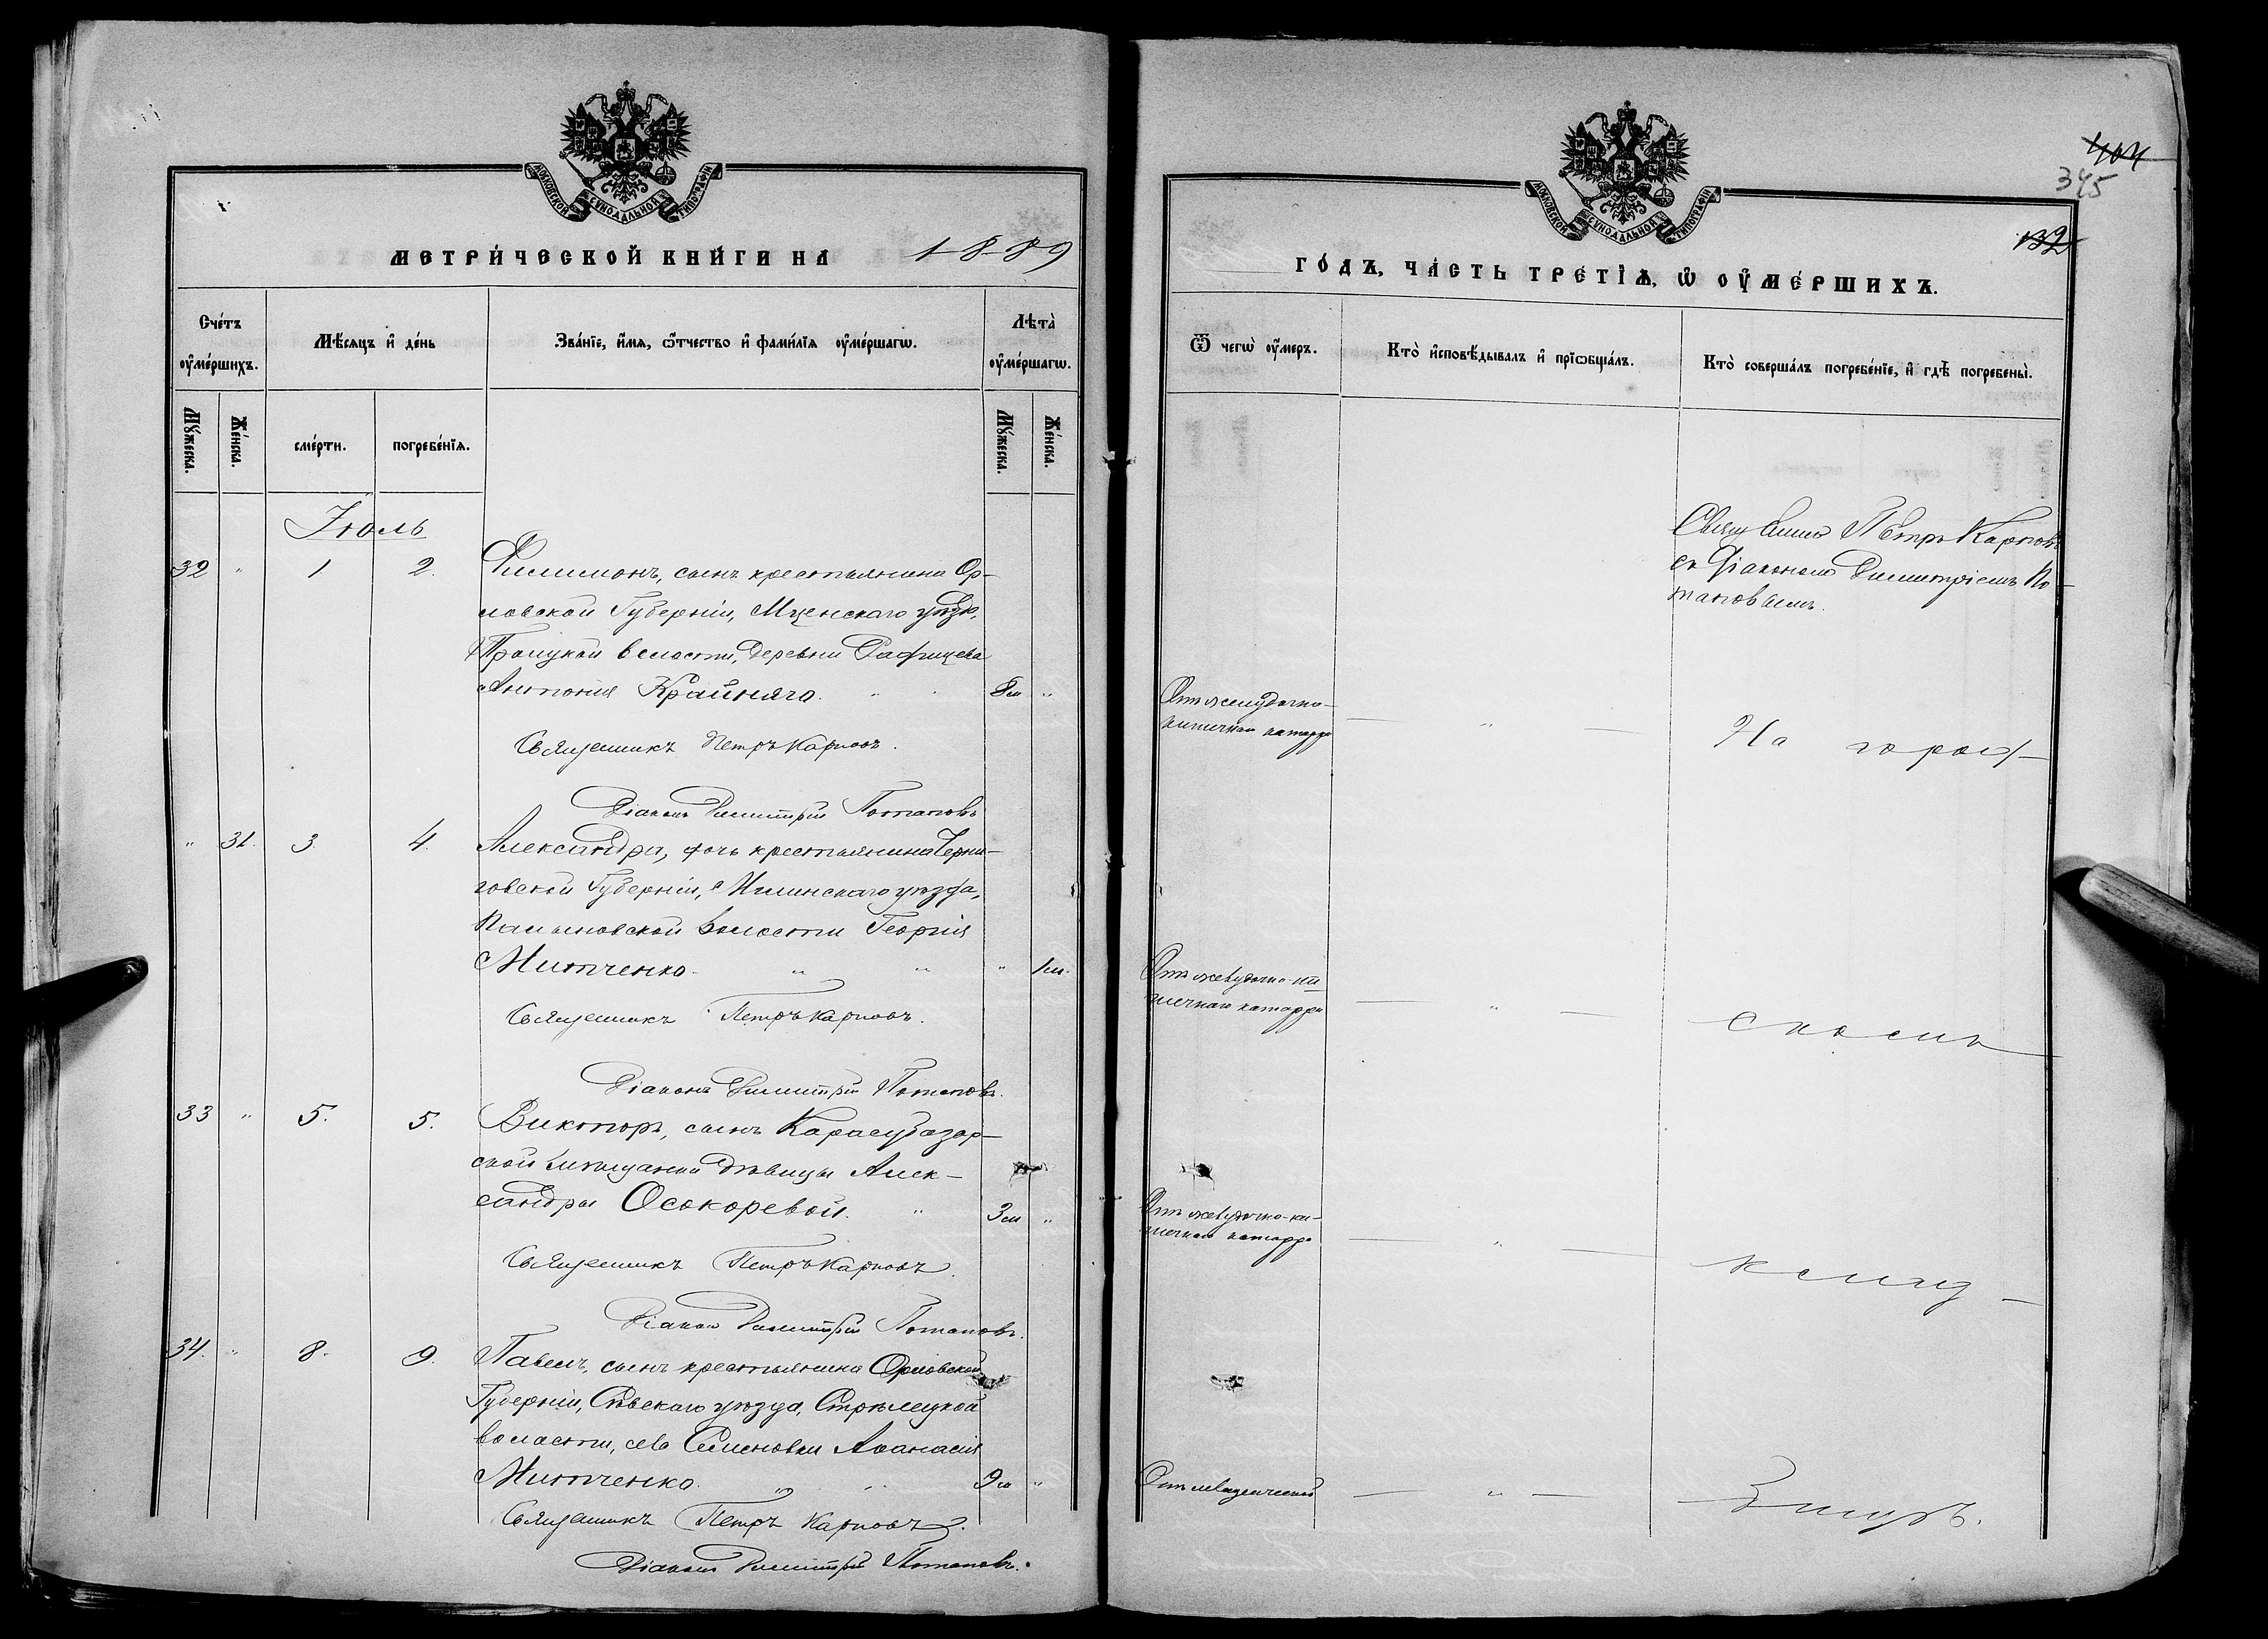 МОСКОВСКОЙ СѴНОДАЛЬНОЙ ТИПОГРАФІИ
МЕТРИ́ЧЕСКОЙ КНИ́ГИ НА 1889
Сче́тъ ᲂу҆ме́ршихъ.
Мѣ́сяцъ и҆ де́нь
Зва́нїе, и҆́мя, ѻ҆́тчество и҆ фами́лїя ᲂу҆ме́ршагѡ.
Лѣта̀ ᲂу҆ме́ршагѡ.
Мꙋ́жеска.
Же́нска.
сме́рти.
погребе́нїѧ.
Мꙋ́жеска.
Же́нска.
Іюль
32 " 1 2. Филимонъ, сынъ крестьянина Ор-
ловской Губерніи, Мценскаго уѣзд.,
Троицкой волости, деревни
Антонія Крайняго. " " 8 м "
Священникъ Петръ Карповъ.
Діаконъ Димитрій Потаповъ
" 31. 3 4. Александра, дочь крестьянина Черни-
говской Губерніи, Мглинскаго уѣзда,
волости Георгія
Митченко. " " " 1 м.
Священникъ Петръ Карповъ.
Діаконъ Димитрій Потаповъ.
33 " 5. 5. Викторъ, сынъ Карасубазар-
ской мѣщанки дѣвицы Алек-
сандры Осокоревой. " 3 м "
Священникъ Петръ Карповъ.
Діаконъ Димитрій Потаповъ.
34. " 8. 9. Павелъ, сынъ крестьянина Орловской
Губерніи, Сѣвскаго уѣзда, Стрѣлецкой
волости, села Семеновки Аѳанасія
Митченко. " " 9 м "
Священникъ Петръ Карповъ.
Діаконъ Димитрій Потаповъ.
МОСКОВСКОЙ СѴНОДАЛЬНОЙ ТИПОГРАФІИ
404
345
132
ГО́ДЪ, ЧА́СТЬ ТРЕ́ТЇѦ, Ѡ҆ ОУ҆МЕ́РШИХЪ.
Ѿ чегѡ̀ ᲂу҆́меръ.
Кто̀ и҆сповѣ́дывалъ и҆ прїѡбща́лъ.
Кто̀ соверша́лъ погребе́нїе, и҆ гдѣ̀ погребены̀.
Петръ Карповъ
съ Діакономъ Димитріемъ По-
таповымъ.
Отъ желудочно-
кишечнаго катарра
"
На город-
Отъ желудочно-ки-
шечнаго катарра
"
скомъ
Отъ желудочно-ки-
шечнаго катарра
"
клад-
Отъ младенческой
"
бищѣ.